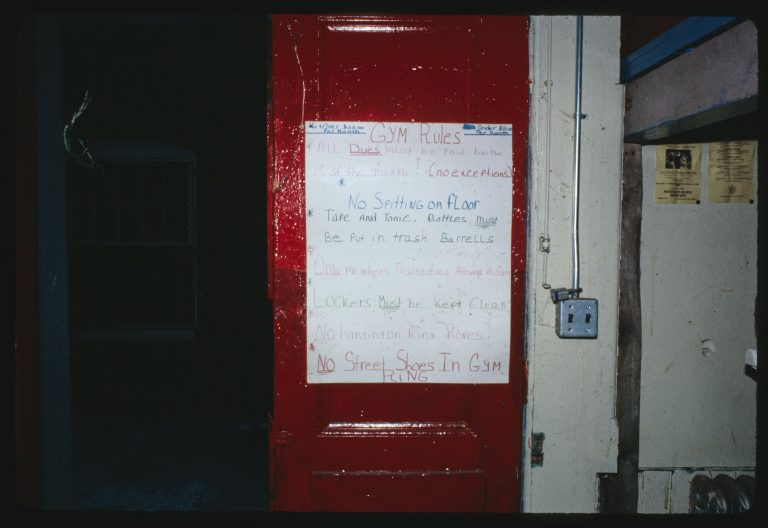 GYM Rules
Per Month
Per Month
ALL Dues must be Paid by the
1st of the month! (no exceptions)
No Spitting on floor
Tape And Tonic Bottles Must
Be Put in trash Barrells
Only Members Allowed in Gym
Lockers Must be Kept Clean
No hanging on Ring Ropes!
No Street Shoes In GYM
RING